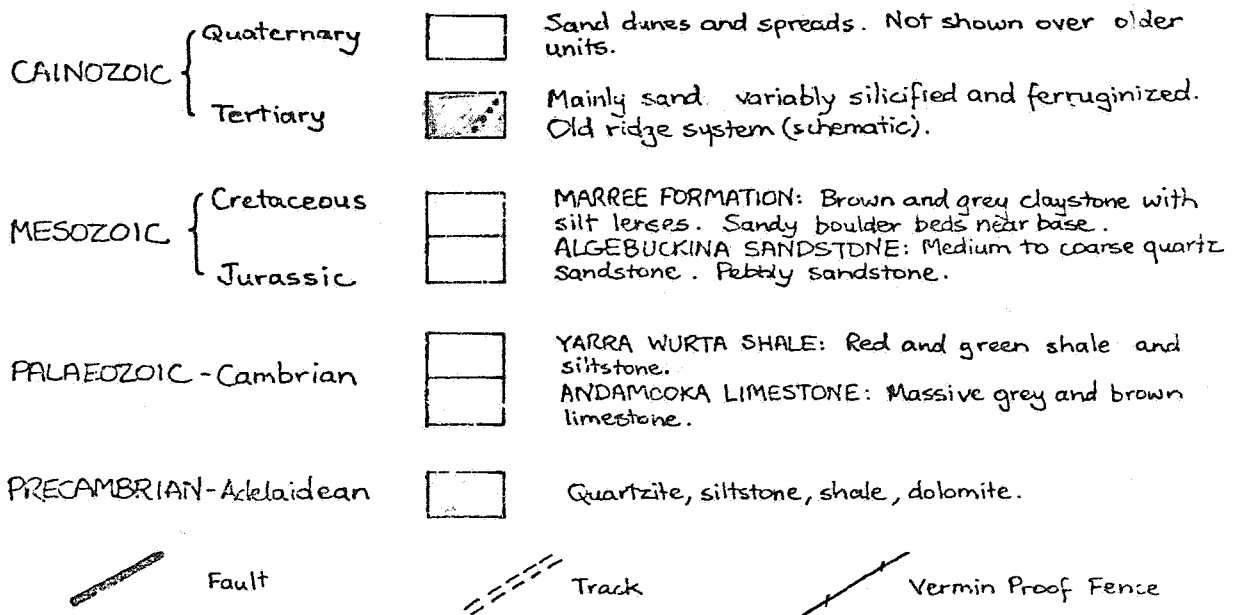 Quaternary
Sand dunes and spreads. Not shown over older
units.
CAINOZOIC
Tertiary
Mainly sand variably silicified and ferruginized.
Old ridge system (schematic).
Cretaceous
MARREE FORMATION: Brown and grey claystone with
silt lenses. Sandy boulder beds near base.
MESOZOIC
ALGEBUCKINA SANDSTONE: Medium to coarse quartz
sandstone. Pebbly sandstone.
Jurassic
YARRA WURTA SHALE: Red and green shale and
siltstone.
PALAEOZOIC - Cambrian
ANDAMOOKA LIMESTONE: Massive grey and brown
limestone.
PRECAMBRIAN - Adelaidean
Quartzite, siltstone, shale, dolomite.
Fault
Track
Vermin Proof Fence